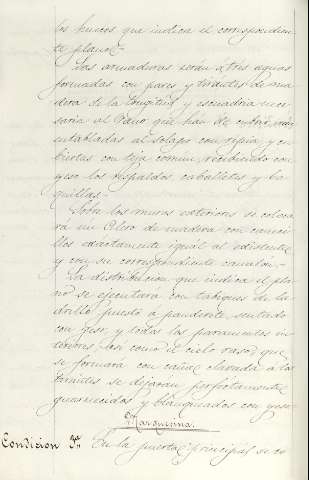 los huecos que indica el correspondien-
te plano.-
Las armaduras serán a tres aguas
formadas con pares y tirantes de ma-
dera de la longitud y escuadria nece-
saria al vano que han de cubrir, irán
entabladas al solapo con ripia y cu-
biertas con teja comun, recibiendo con
yeso los respaldos caballetes y bo-
quillas.-
Sobre los muros exteriores se coloca-
rá un alero de madera con caneci-
llos exactamente igual al existente
y con su correspondiente canalón.-
La distribucion que indica el pla-
no se ejecutará con tabiques de la-
drillo puesto a panderete, sentado
con yeso, y todos los paramentos in-
teriores así como el cielo raso que
se formará con cañas clavadas a los
tirantes se dejarán perfectamente
guarnecidos y blanqueados con yeso.
Marquesina.
Condicion 3ª En la puerta principal se co-